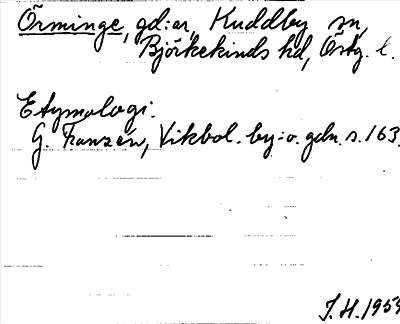 Örminge, gd:ar, Kuddby sn,
Björkekinds hd, Östg. l.
Etymologi:
G. Franzén, Vikbol. by:o. gdn. s. 163.
J.H. 1959